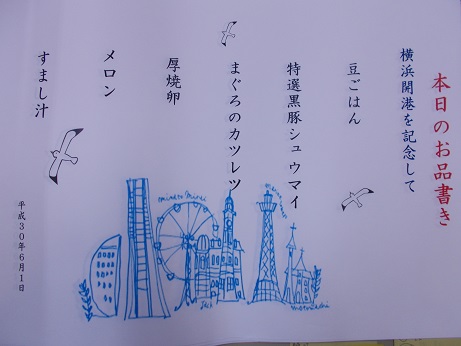 本日のお品書き
横浜開港を記念して
豆ごはん
特選黒豚シュウマイ
まぐろのカツレツ
厚焼卵
メロン
すまし汁
平成30年6月1日
minato mirai
motomachi